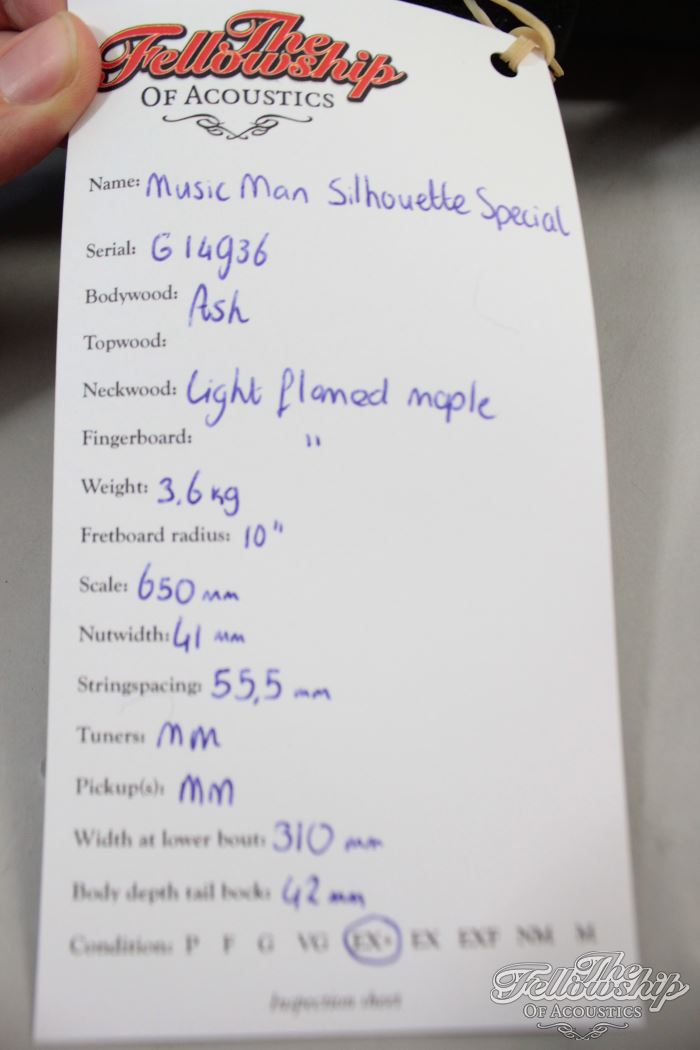 The
Fellowship
OF ACOUSTICS
Name: Music Man Silhouette Special
Serial: G14936
Bodywood: Ash
Topwood:
Neckwood: Light flamed maple
Fingerboard: "
Weight: 3,6 kg
Fretboard radius: 10"
Scale: 650 mm
Nutwidth: 41 mm
Stringspacing: 55,5 mm
Tuners: MM
Pickup(s): MM
Width at lower bout: 310 mm
Body depth tail bock: 42 mm
Condition: P F G VG EX+ EX EXF NM M
Inspection sheet
The
Fellowship
OF ACOUSTICS